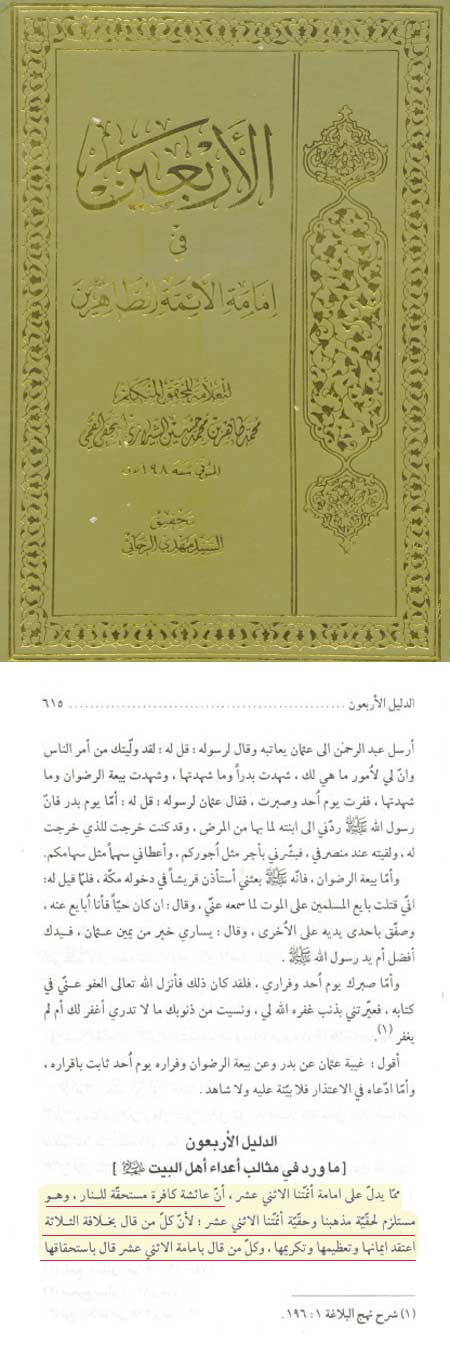 الأربعين
في
إمامة الأئمة الطاهرين
للعلامة المحقق المتكلم
محمد طاهر بن محمد حسين الشيرازي النجفي القمي
المتوفى سنة ١٠٩٨ هـ ق
تحقيق
السيد مهدي الرجائي
الدليل الأربعون ........................................................ ٦١٥
أرسل عبد الرحمن الى عثمان يعاتبه وقال لرسوله : قل له : لقد ولّيتك من أمر الناس
وانّ لي لأمور ما هي لك ، شهدت بدراً وما شهدتها ، وشهدت بيعة الرضوان وما
شهدتها ، ففرت يوم أُحد وصبرت ، فقال عثمان لرسوله : قل له : أمّا يوم بدر فانّ
رسول الله ﷺ ردّني الى ابنته لما بها من المرض ، وقد كنت خرجت للذي خرجت
له ، ولقيته عند منصرفي ، فبشّرني بأجر مثل أجوركم ، وأعطاني سهماً مثل سهامكم .
وأمّا بيعة الرضوان ، فانّه ﷺ بعثني أستأذن قريشاً في دخوله مكّة ، فلمّا قيل له :
انّي قتلت بايع المسلمين على الموت لما سمعه عنّي ، وقال : ان كان حيّاً فأنا أبايع عنه ،
وصفّق باحدى يديه على الأخرى ، وقال : يساري خير من يمين عثمان ، فيدك
أفضل أم يد رسول الله ﷺ .
وأمّا صبرك يوم أُحد وفراري ، فلقد كان ذلك فأنزل الله تعالى العفو عنّي في
كتابه ، فعيّرتني بذنب غفره الله لي ، ونسيت من ذنوبك ما لا تدري أغفر لك أم لم
يغفر (١).
أقول : غيبة عثمان عن بدر وعن بيعة الرضوان وفراره يوم أُحد ثابت باقراره ،
وأمّا ادّعاه في الاعتذار فلا بيّنة عليه ولا شاهد .
الدليل الأربعون
[ ما ورد في مثالب أعداء أهل البيت ]
ممّا يدلّ على امامة أئمّتنا الاثني عشر ، أنّ عائشة كافرة مستحقّة للنار ، وهو
مستلزم لحقّيّة مذهبنا وحقّيّة أئمّتنا الاثني عشر ؛ لأنّ كلّ من قال بخلافة الثلاثة
اعتقد ايمانها وتعظيمها وتكريمها ، وكلّ من قال بامامة الاثني عشر قال باستحقاقها
(١) شرح نهج البلاغة ١ : ١٩٦ .